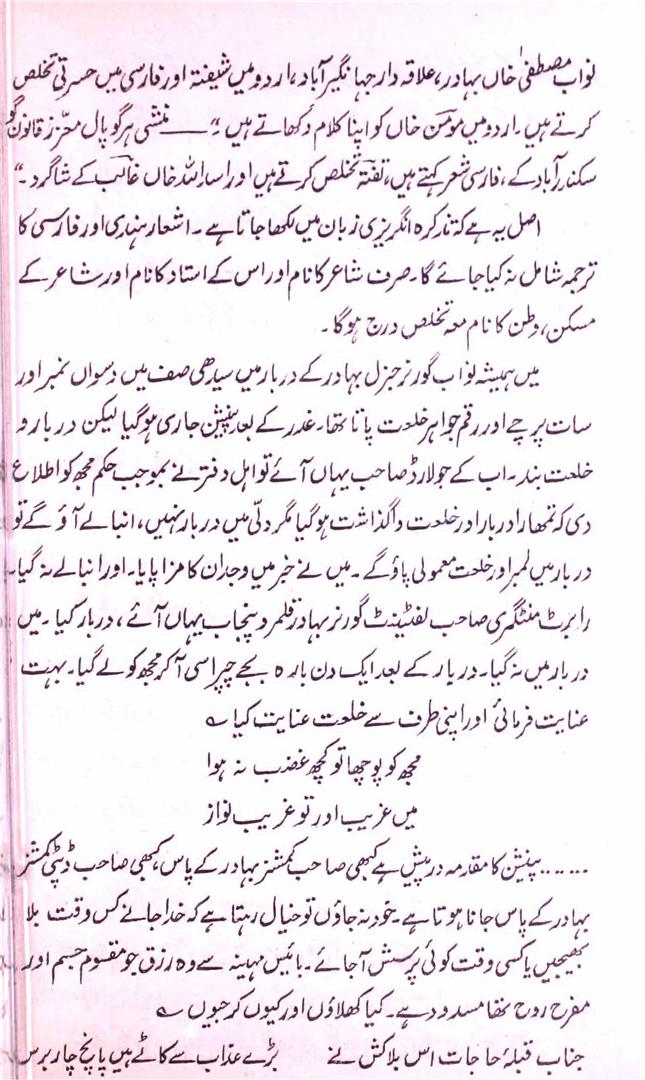 نواب مصطفیٰ خاں بہادر، علاقہ دار جہانگیر آباد، اردو میں شیفتہ اور فارسی میں حسرتی تخلص
کرتے ہیں۔ اردو میں مومن خاں کو اپنا کلام دکھاتے ہیں۔“ —— منشی ہرگوپال معزز قانون گو
سکندر آباد کے، فارسی شعر کہتے ہیں، تفتہ تخلص کرتے ہیں اور اسد اللہ خاں غالب کے شاگرد۔“
اصل یہ ہے کہ تذکرہ انگریزی زبان میں لکھا جاتا ہے۔ اشعار ہندی اور فارسی کا
ترجمہ شامل نہ کیا جائے گا۔ صرف شاعر کا نام اور اس کے استاد کا نام اور شاعر کے
مسکن، وطن کا نام معہ تخلص درج ہوگا۔
میں ہمیشہ نواب گورنر جنرل بہادر کے دربار میں سیدھی صف میں دسواں نمبر اور
سات پرچے اور رقم جواہر خلعت پاتا تھا۔ غدر کے بعد پنشن جاری ہوگیا لیکن دربار و
خلعت بند۔ اب کے جو لارڈ صاحب یہاں آئے تو اہل دفتر نے بموجب حکم مجھ کو اطلاع
دی کہ تمھارا دربار اور خلعت واگذاشت ہوگیا مگر دلّی میں دربار نہیں، انبالے آؤ گے تو
دربار میں لمبر اور خلعت معمولی پاؤ گے۔ میں نے خبر میں وجدان کا مزا پایا۔ اور انبالے نہ گیا۔
رابرٹ منٹگمری صاحب لفٹیننٹ گورنر بہادر قلمرو پنجاب یہاں آئے، دربار کیا۔ میں
دربار میں نہ گیا۔ دربار کے بعد ایک دن بارہ بجے چپراسی آکر مجھ کو لے گیا۔ بہت
عنایت فرمائی اور اپنی طرف سے خلعت عنایت کیا ؎
مجھ کو پوچھا تو کچھ غضب نہ ہوا
میں غریب اور تو غریب نواز
...... پنشن کا مقدمہ درپیش ہے کبھی صاحب کمشنر بہادر کے پاس، کبھی صاحب ڈپٹی کمشنر
بہادر کے پاس جانا ہوتا ہے۔ خود نہ جاؤں تو خیال رہتا ہے کہ خدا جانے کس وقت بلا
بھیجیں یا کسی وقت کوئی پرسش آجائے۔ بائیس مہینہ سے وہ رزق جو مقسوم جسم اور
مفرح روح تھا مسدود ہے۔ کیا کھلاؤں اور کیوں کر جیوں ؎
جناب قبلۂ حاجات اس بلاکش نے بڑے عذاب سے کاٹے ہیں پانچ چار برس